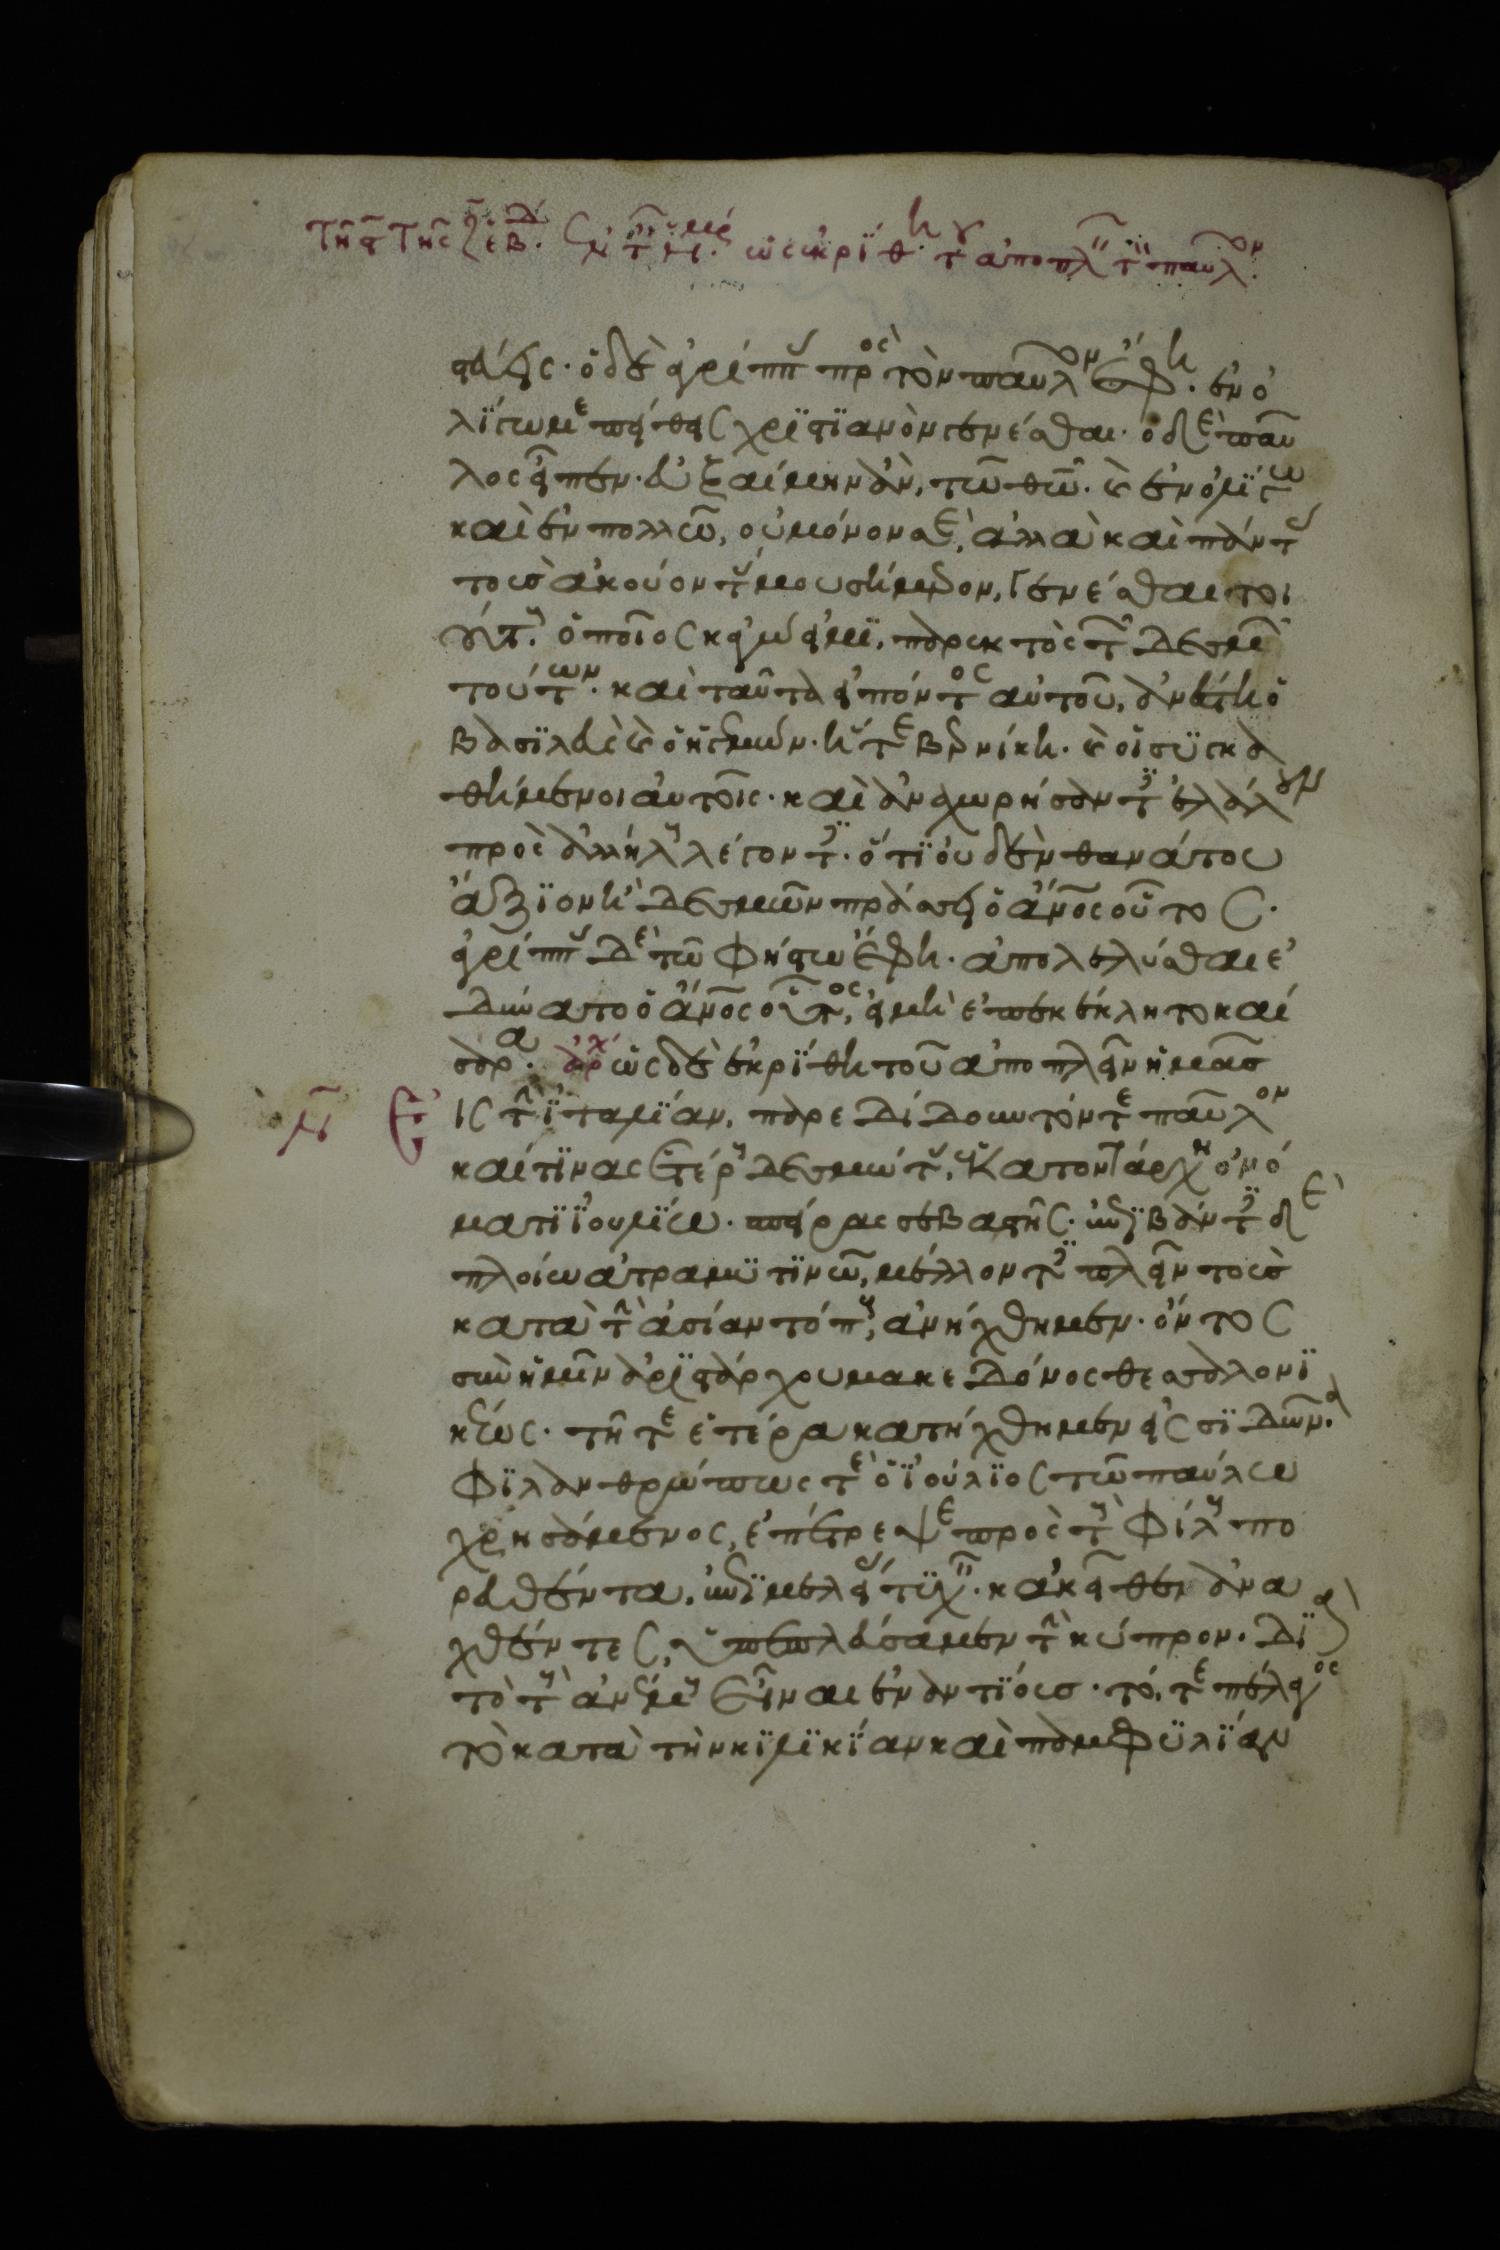 στεύεις· ὁ δὲ ἀγρίππας πρὸς τὸν παῦλον ἔφη· ἐν ὀ
λίγω με πείθεις χριστιανὸν γενέσθαι· ὁ δὲ παῦ
λος εἶπεν· εὐξαίμην ἂν, τῶ θῶ· καὶ ἐν ὀλίγω
καὶ ἐν πολλῶ, οὐ μόνον σὲ, ἀλλὰ καὶ πάντας
τοὺσ ἀκούοντάς μου σήμερον, γενέσθαι τοι
ούτους ὁποῖος κἀγώ εἰμι, παρεκτὸς τῶν δεσμῶν
τούτων· καὶ ταῦτα εἰπόντος αὐτοῦ, ἀνέστη ὁ
βασιλεὺς καὶ ὁ ἡγεμών· ἥ τε βερνίκη· καὶ οἱ συγκα
θήμενοι αὐτοῖς· καὶ ἀναχωρήσαντες ἐλάλουν
πρὸς ἀλλήλους λέγοντες· ὅτι οὐδὲν θανάτου
ἄξιον ἢ δεσμῶν πράσσει ὁ ἄνος οὗτος·
ἀγρίππας δὲ τῶ φήστω ἔφη· ἀπολελύσθαι ἐ
δύνατο ὁ ἄνος οὗτος, εἰ μὴ ἐπεκέκλητο καί
σαρα· ἀρχ ὡς δὲ ἐκρίθη τοῦ ἀποπλεῖν ἡμᾶσ
μ Εἰς τὴν ἰταλίαν, παρεδίδουν τόν τε παῦλον
καί τινας ἑτέρους δεσμώτας, ἑκατοντάρχη ὀνό
ματι ἰουλίω· σπείρας σεβαστῆς· ἐπιβάντες δὲ
πλοίω ἀτραμυτινῶ, μέλλοντες πλεῖν τοὺσ
κατὰ τὴν ἀσίαν τόπους, ἀνήχθημεν· ὄντος
σὺν ἡμῖν ἀριστάρχου μακεδόνος θεσσαλονι
κέως· τῆ τε ἑτέρα κατήχθημεν εἰς σιδῶνα·
φιλανθρώπως τὲ ὁ ἰούλιος τῶ παύλω
χρησάμενος, ἐπέτρεψε πρὸς τοὺς φίλους πο
ρευθέντα, ἐπιμελείας τυχεῖν· κἀκεῖθεν ἀνα
χθέντες, ὑπεπλεύσαμεν τὴν κύπρον· διὰ
τὸ τοὺς ἀνέμους εἶναι ἐναντίουσ· τό, τε πέλαγος
τὸ κατὰ τὴν κιλικίαν καὶ παμφυλίαν